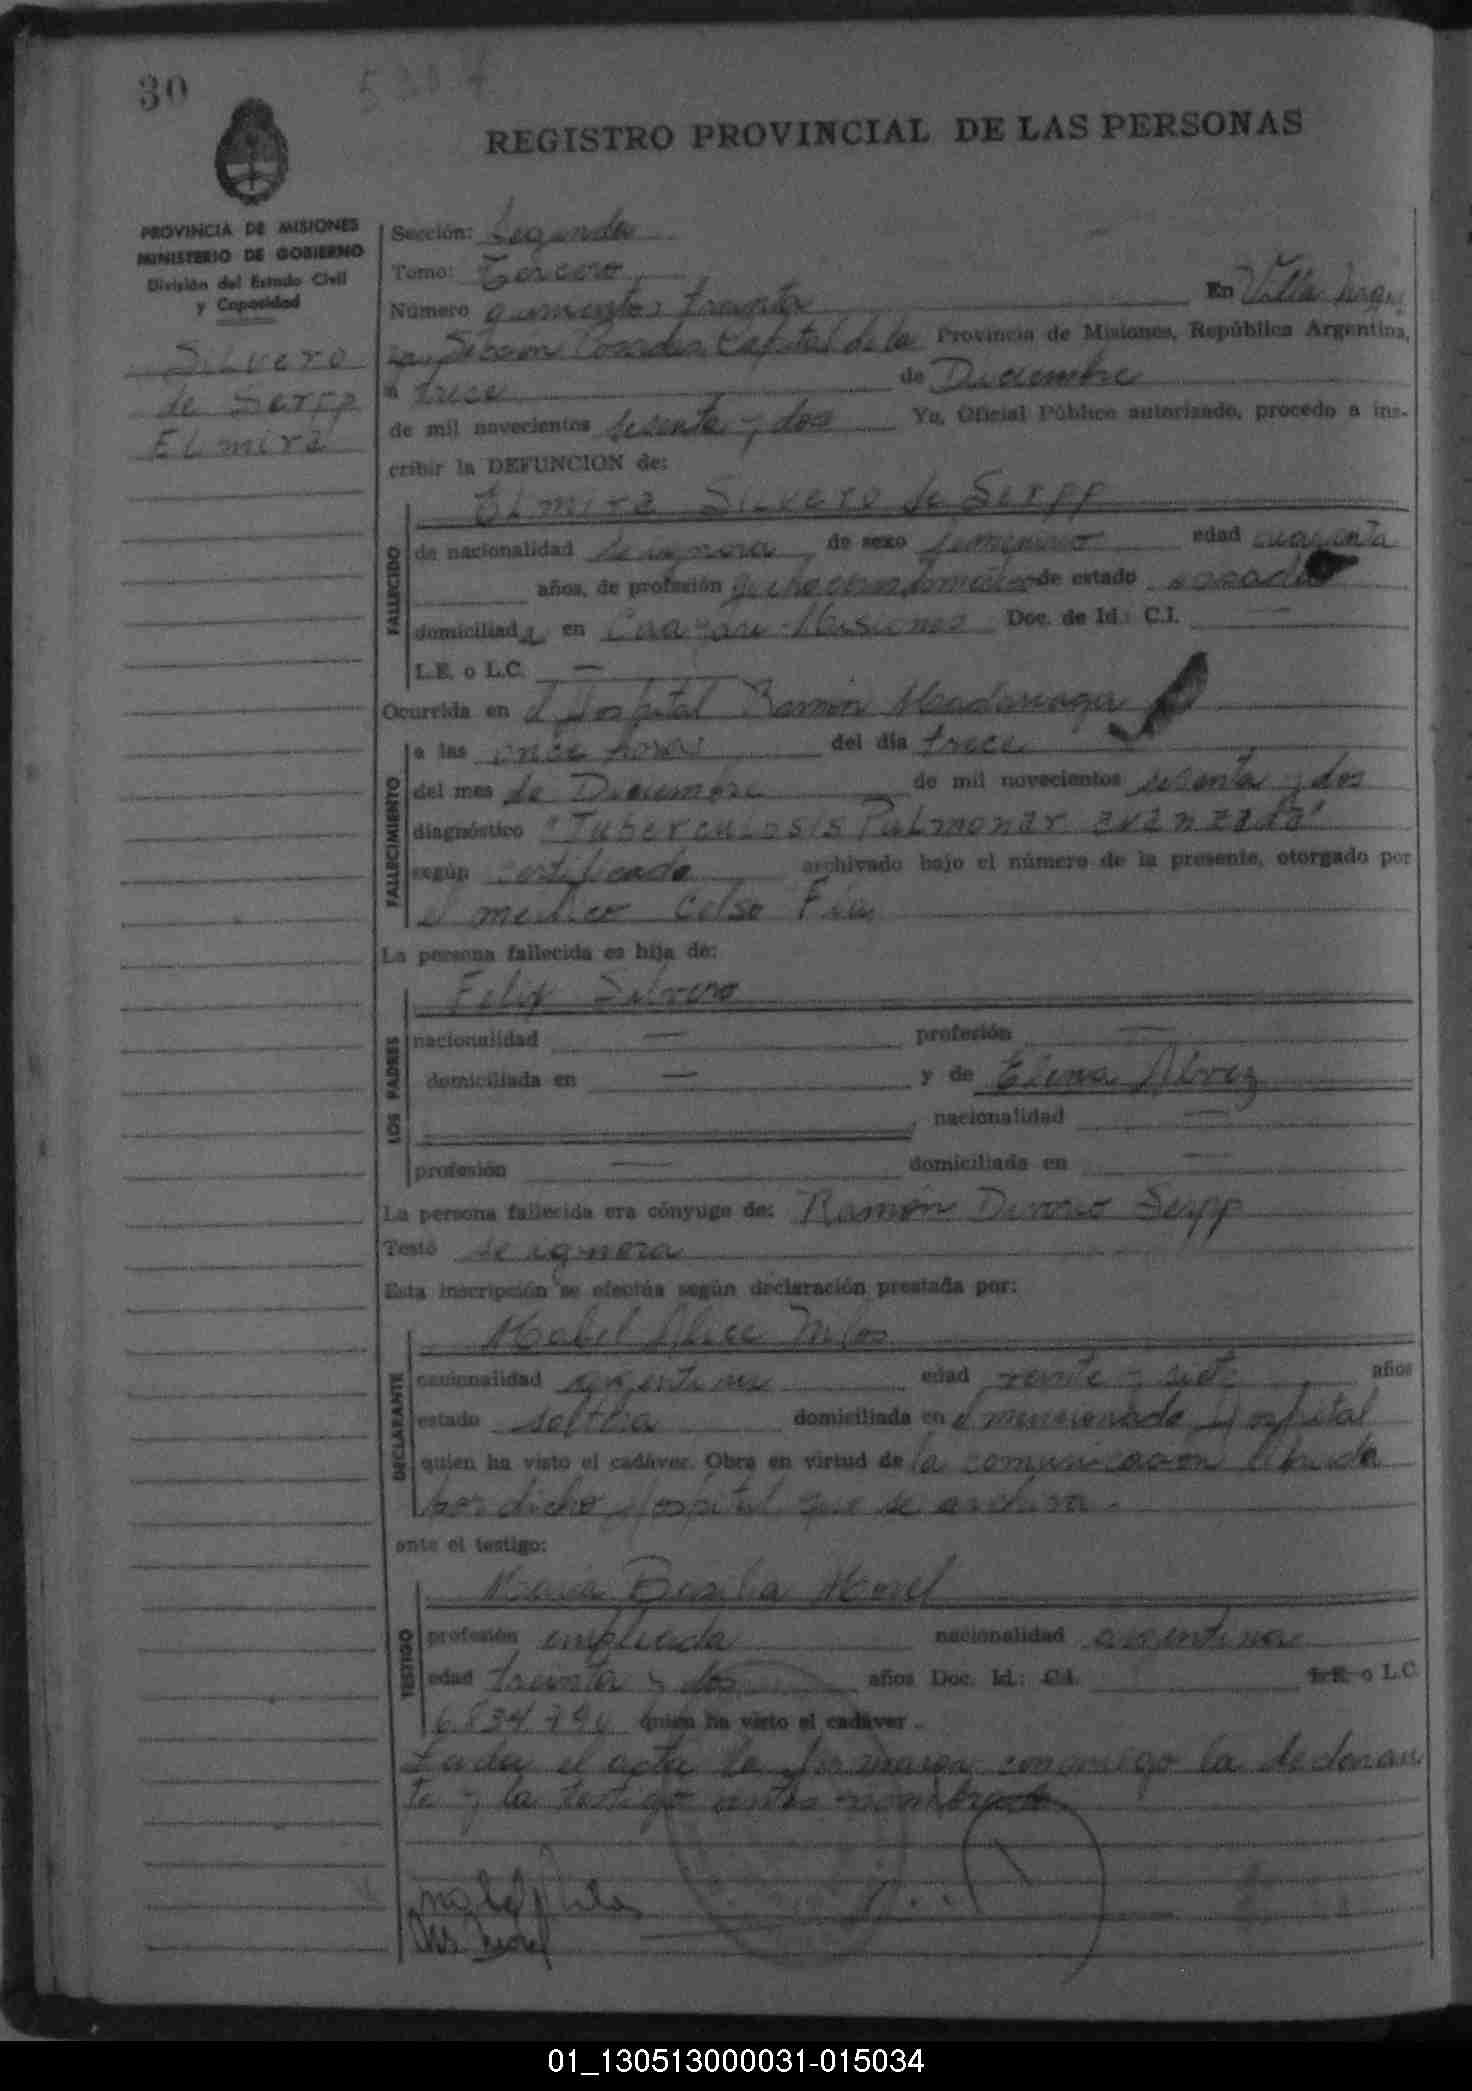 30
REGISTRO PROVINCIAL DE LAS PERSONAS
PROVINCIA DE MISIONES
MINISTERIO DE GOBIERNO
División del Estado Civil
y Capacidad
Silvero
de Serpp
Elmira
Sección: Segunda
Tomo: Tercero
Número quinientos treinta En Villa
Capital de la Provincia de Misiones, República Argentina,
a trece de Diciembre
de mil novecientos sesenta y dos Yo, Oficial Público autorizado, procedo a ins-
cribir la DEFUNCION de:
Elmira Silvero de Serpp
FALLECIDO
de nacionalidad se ignora de sexo femenino edad cuarenta
años, de profesión de estado casada
domiciliada en Misiones Doc. de Id.: C.I. —
L.E. o L.C. —
Ocurrida en el Hospital Ramón Madariaga
FALLECIMIENTO
a las once horas del día trece
del mes de Diciembre de mil novecientos sesenta y dos
diagnóstico "Tuberculosis Pulmonar avanzada"
según certificado archivado bajo el número de la presente, otorgado por
el médico Celso
La persona fallecida es hija de:
Felix Silvero
LOS PADRES
nacionalidad — profesión —
domiciliada en — y de Elena Alvez
, nacionalidad —
profesión — domiciliada en —
La persona fallecida era cónyuge de: Ramón Serpp
Testó se ignora
Esta inscripción se efectúa según declaración prestada por:
Mabel Alice
DECLARANTE
nacionalidad argentina edad veinte y siete años
estado soltera domiciliada en el mencionado Hospital
quien ha visto el cadáver. Obra en virtud de la comunicación librada
por dicho Hospital que se archiva.
ante el testigo:
Maria Basilia Morel
TESTIGO
profesión empleada nacionalidad argentina
edad treinta y dos años Doc. Id.: C.I. L.E. o L.C.
quien ha visto el cadáver.
Leída el acta la firmaron conmigo la declaran
te y la testigo antes nombrada
01_130513000031-015034